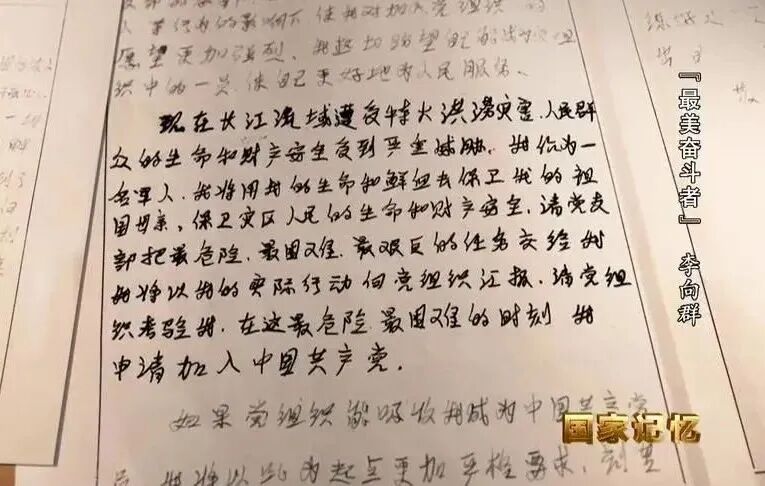 愿望更加强烈。我迫切盼望自己能成为党组
织中的一员，使自己更好地为人民服务。
现在长江流域遭受特大洪涝灾害，人民群
众的生命和财产安全受到严重威胁，我作为一
名军人，我将用我的生命和鲜血去保卫我的祖
国母亲，保卫灾区人民的生命和财产安全，请党支
部把最危险、最困难、最艰巨的任务交给我
我将以我的实际行动向党组织汇报，请党组
织考验我，在这最危险、最困难的时刻 我
申请加入中国共产党。
如果党组织能吸收我成为中国共产党
我将以此为起点更加严格要求，刻苦
『最美奋斗者』 李向群
国家记忆